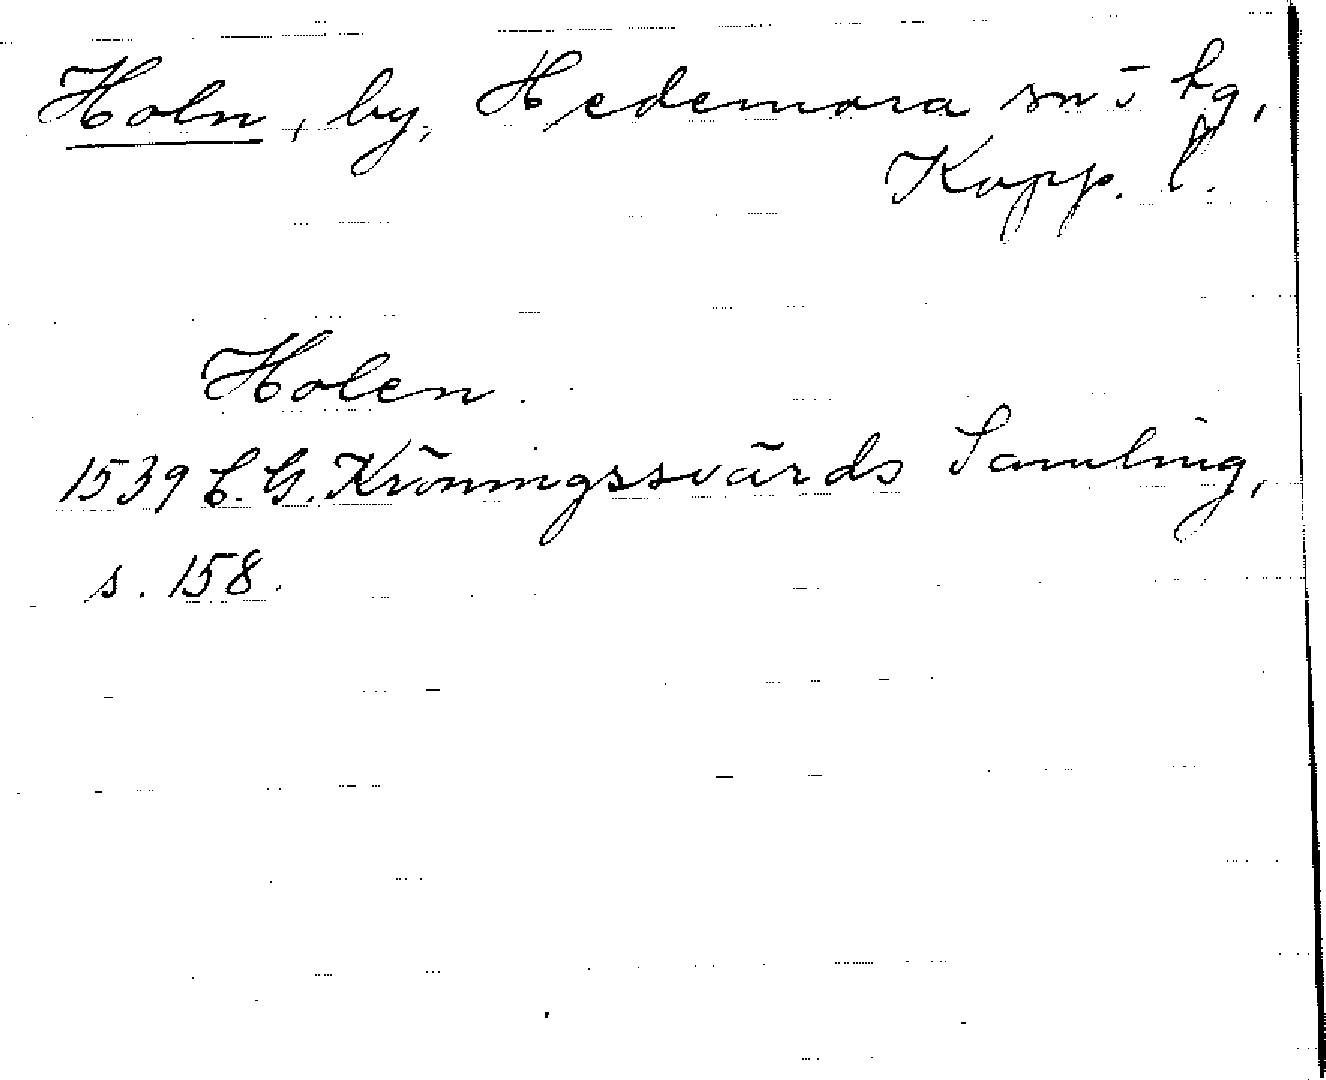 Holn, by, Hedemora sn o hg,
Kopp. l.
Holen.
1539 C. G. Kröningssvärds Samling,
s. 158.